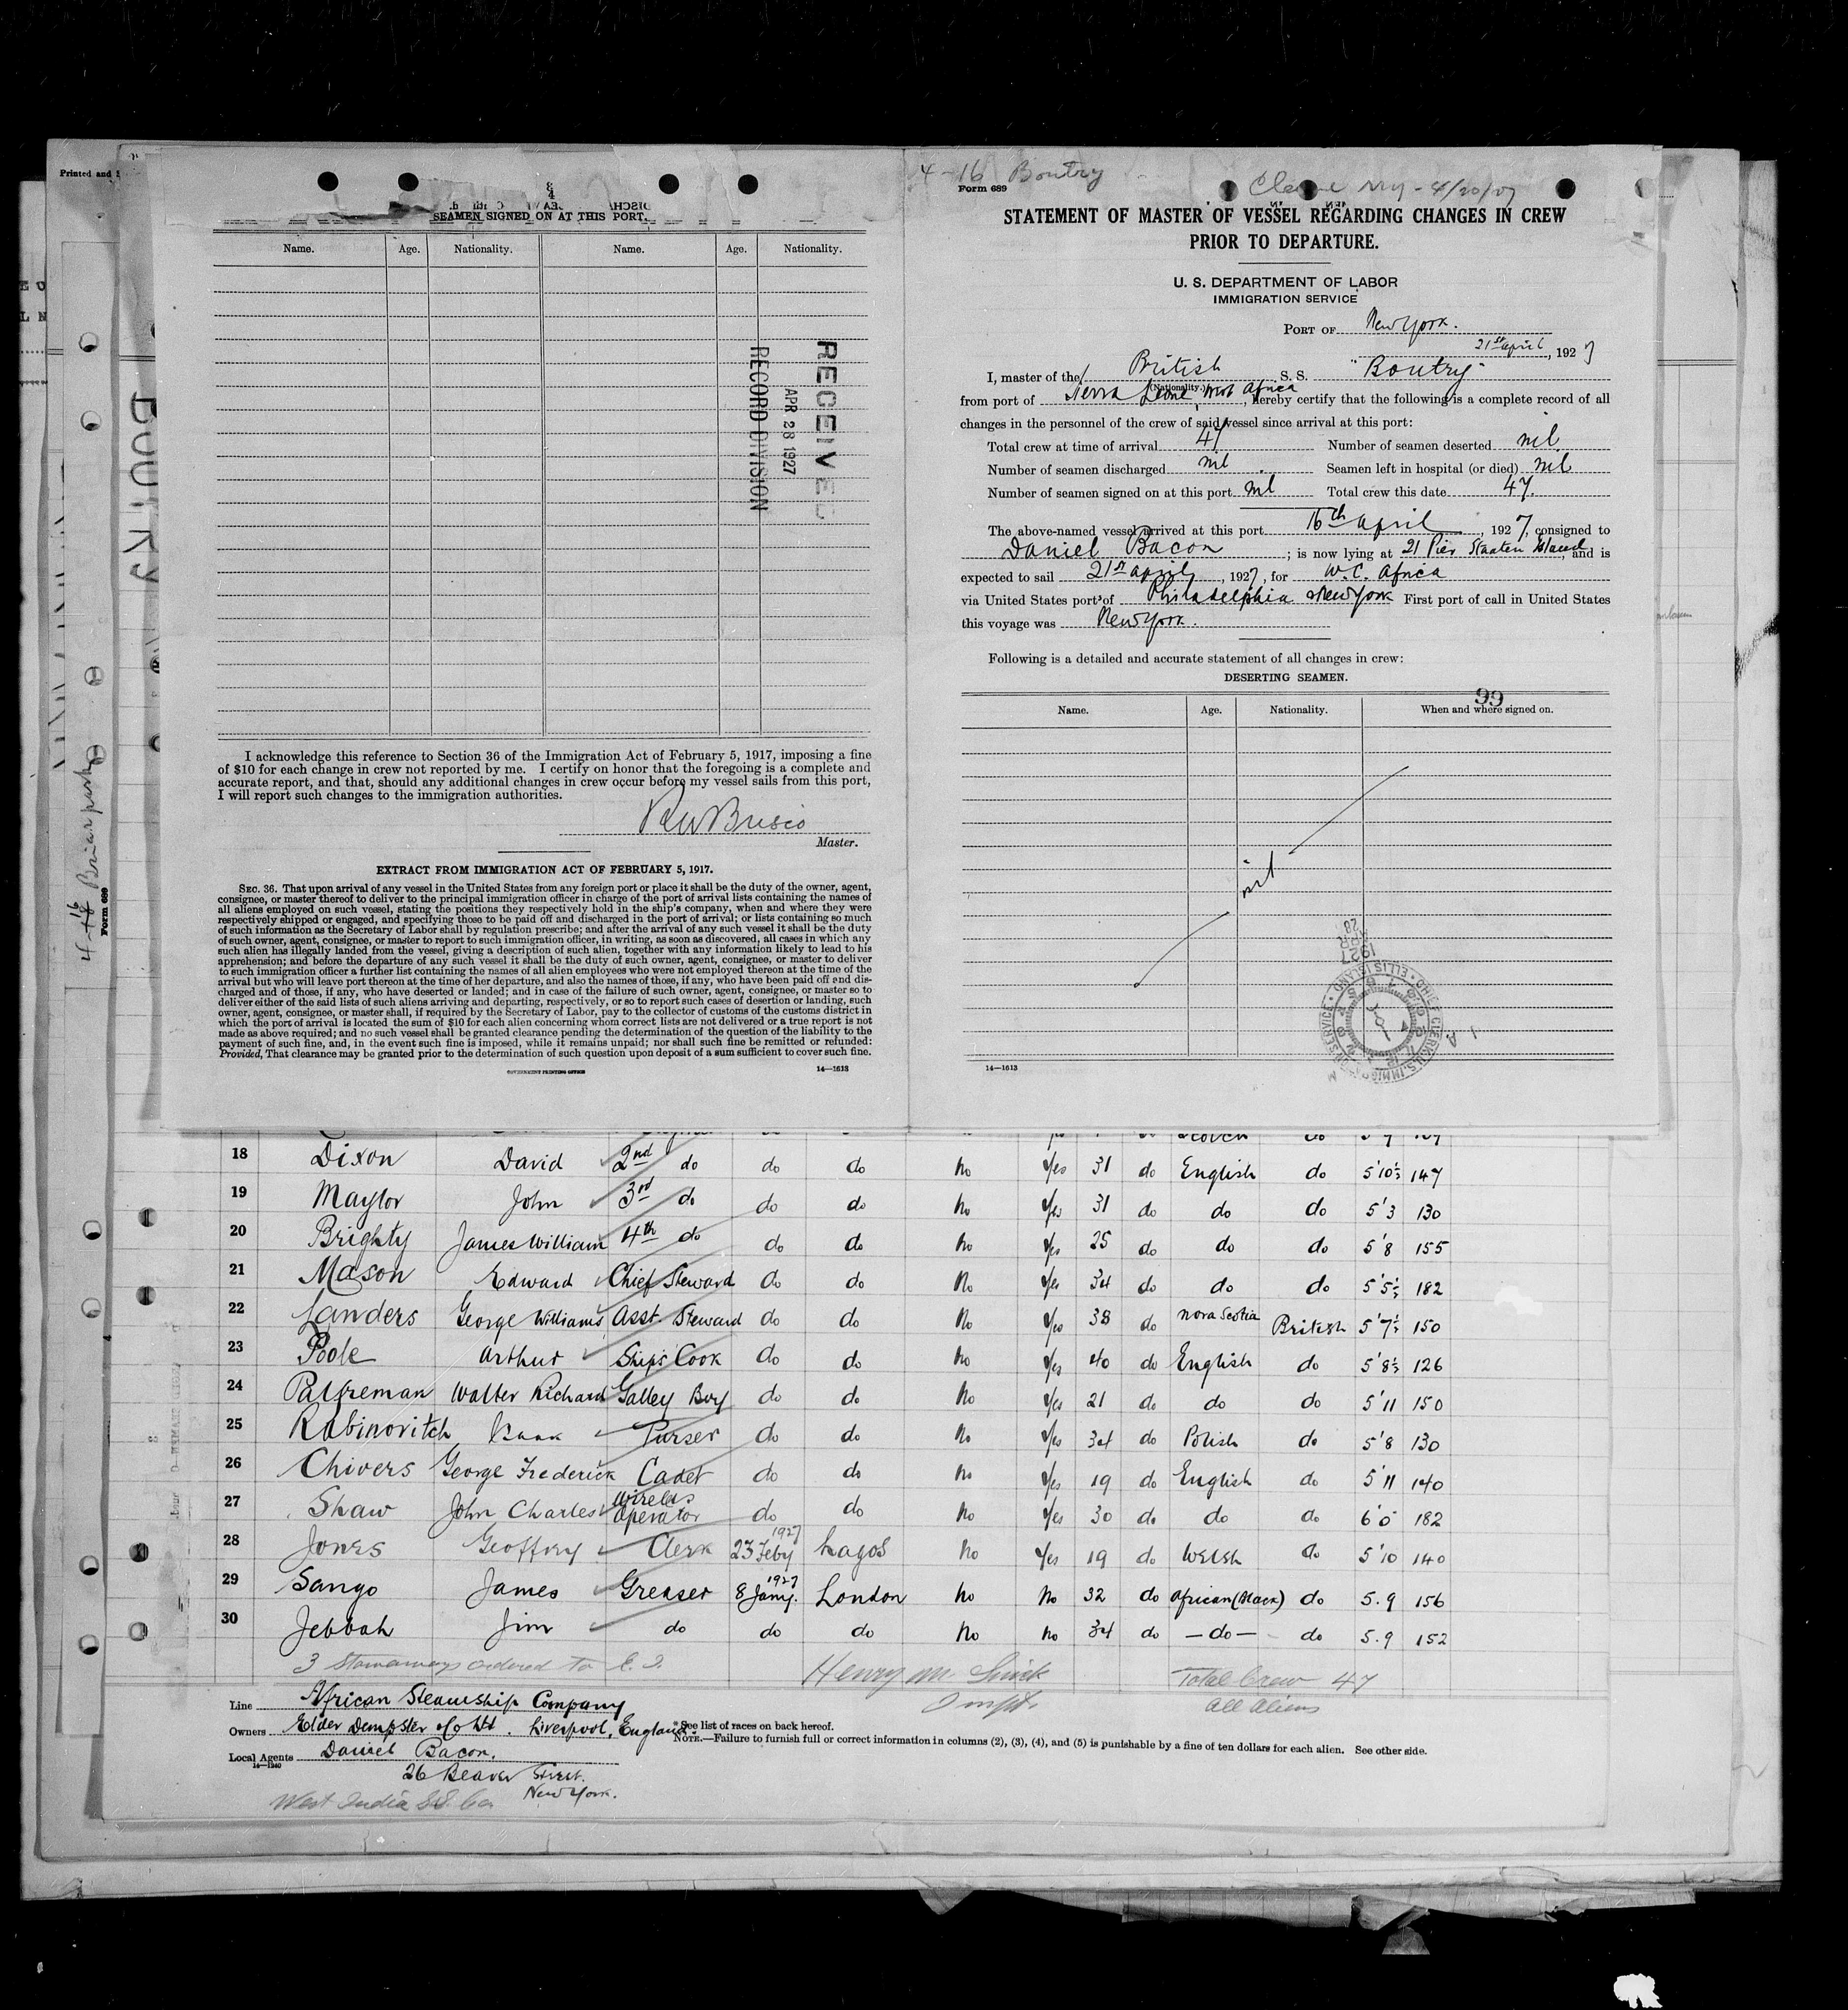 Printed and
SEAMEN SIGNED ON AT THIS PORT.
Name. Age. Nationality. Name. Age. Nationality.
RECEIVED
APR 28 1927
RECORD DIVISION
I acknowledge this reference to Section 36 of the Immigration Act of February 5, 1917, imposing a fine
of $10 for each change in crew not reported by me. I certify on honor that the foregoing is a complete and
accurate report, and that, should any additional changes in crew occur before my vessel sails from this port,
I will report such changes to the immigration authorities.
Master.
EXTRACT FROM IMMIGRATION ACT OF FEBRUARY 5, 1917.
SEC. 36. That upon arrival of any vessel in the United States from any foreign port or place it shall be the duty of the owner, agent,
consignee, or master thereof to deliver to the principal immigration officer in charge of the port of arrival lists containing the names of
all aliens employed on such vessel, stating the positions they respectively hold in the ship's company, when and where they were
respectively shipped or engaged, and specifying those to be paid off and discharged in the port of arrival; or lists containing so much
of such information as the Secretary of Labor shall by regulation prescribe; and after the arrival of any such vessel it shall be the duty
of such owner, agent, consignee, or master to report to such immigration officer, in writing, as soon as discovered, all cases in which any
such alien has illegally landed from the vessel, giving a description of such alien, together with any information likely to lead to his
apprehension; and before the departure of any such vessel it shall be the duty of such owner, agent, consignee, or master to deliver
to such immigration officer a further list containing the names of all alien employees who were not employed thereon at the time of the
arrival but who will leave port thereon at the time of her departure, and also the names of those, if any, who have been paid off and dis-
charged and of those, if any, who have deserted or landed; and in case of the failure of such owner, agent, consignee, or master so to
deliver either of the said lists of such aliens arriving and departing, respectively, or so to report such cases of desertion or landing, such
owner, agent, consignee, or master shall, if required by the Secretary of Labor, pay to the collector of customs of the customs district in
which the port of arrival is located the sum of $10 for each alien concerning whom correct lists are not delivered or a true report is not
made as above required; and no such vessel shall be granted clearance pending the determination of the question of the liability to the
payment of such fine, and, in the event such fine is imposed, while it remains unpaid; nor shall such fine be remitted or refunded:
Provided, That clearance may be granted prior to the determination of such question upon deposit of a sum sufficient to cover such fine.
GOVERNMENT PRINTING OFFICE 14—1613
4-16 Boutry
Form 689
STATEMENT OF MASTER OF VESSEL REGARDING CHANGES IN CREW
PRIOR TO DEPARTURE.
U. S. DEPARTMENT OF LABOR
IMMIGRATION SERVICE
PORT OF New York.
21st April, 1927
I, master of the British S. S. "Boutry"
(Nationality.)
from port of Sierra Leone, West Africa, hereby certify that the following is a complete record of all
changes in the personnel of the crew of said vessel since arrival at this port:
Total crew at time of arrival 47 Number of seamen deserted nil
Number of seamen discharged nil. Seamen left in hospital (or died) nil
Number of seamen signed on at this port nil Total crew this date 47.
The above-named vessel arrived at this port 16th April, 1927, consigned to
Daniel Bacon; is now lying at 21 Pier Staaten Island, and is
expected to sail 21st April, 1927, for W. C. Africa
via United States ports of Philadelphia New York First port of call in United States
this voyage was New York.
Following is a detailed and accurate statement of all changes in crew:
DESERTING SEAMEN.
99
Name. Age. Nationality. When and where signed on.
nil
14—1613
BOUTRY
Form 689
18 Dixon David 2nd do do do No Yes 31 do English do 5'10½ 147
19 Maylor John 3rd do do do No Yes 31 do do do 5'3 130
20 Brighty James William 4th do do do No Yes 25 do do do 5'8 155
21 Mason Edward Chief Steward do do No Yes 34 do do do 5'5½ 182
22 Sanders George Williams Asst. Steward do do No Yes 38 do Nova Scotia British 5'7½ 150
23 Poole Arthur Ships Cook do do No Yes 40 do English do 5'8½ 126
24 Palfreman Walter Richard Galley Boy do do No Yes 21 do do do 5'11 150
25 Rabinovitch Isaak Purser do do No Yes 34 do Polish do 5'8 130
26 Chivers George Frederick Cadet do do No Yes 19 do English do 5'11 140
27 Shaw John Charles Wireless Operator do do No Yes 30 do do do 6'0 182
28 Jones Geoffrey Clerk 23 Feby 1927 Lagos No Yes 19 do Welsh do 5'10 140
29 Sango James Greaser 8 Jany. 1927 London No No 32 do African (Black) do 5.9 156
30 Jebbah Jim do do do No No 34 do —do— do 5.9 152
3 Stowaways ordered to E. I. Henry M. Total Crew 47
All Aliens
Line African Steamship Company
Owners Elder Dempster & Co Ltd. Liverpool, England
*See list of races on back hereof.
NOTE.—Failure to furnish full or correct information in columns (2), (3), (4), and (5) is punishable by a fine of ten dollars for each alien. See other side.
Local Agents Daniel Bacon.
14—1240
26 Beaver Street.
New York.
West India S.S. Co.